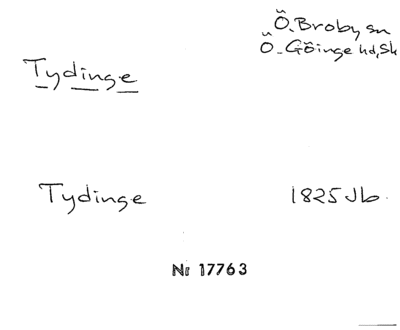 Ö. Broby sn
Ö. Göinge hd, Sk
Tydinge
Tydinge 1825 Jb.
Nr 17763